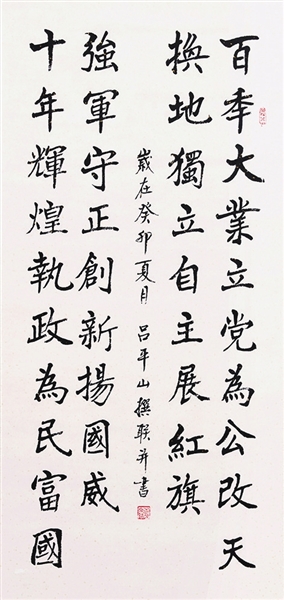 百秊大業立党為公改天
換地獨立自主展紅旗
十年輝煌執政為民富國
強軍守正創新揚國威
歲在癸卯夏月 呂平山撰聯并書